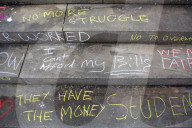 NO MORE STRUGGLE
WORKED
NO TO
Afford my Bills
WE
FAIR
THEY HAVE
THE MONEY STUDEN